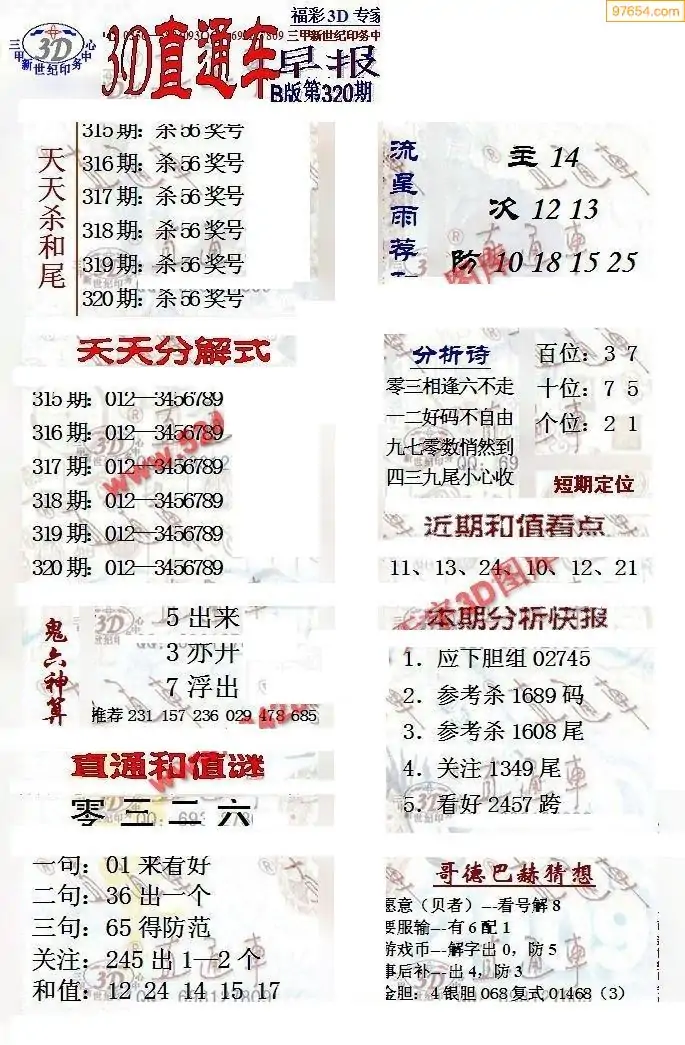 97654.com
福彩3D 专家
三甲新世纪印务中心
3D
三甲新世纪印务中
3D直通车
早报
B版第320期
天天杀和尾
315期：杀56奖号
316期：杀56奖号
317期：杀56奖号
318期：杀56奖号
319期：杀56奖号
320期：杀56奖号
流星雨荐
主 14
次 12 13
防 10 18 15 25
天天分解式
315期：012—3456789
316期：012—3456789
317期：012—3456789
318期：012—3456789
319期：012—3456789
320期：012—3456789
分析诗
零三相逢六不走
一二好码不自由
九七零数悄然到
四三九尾小心收
百位：3 7
十位：7 5
个位：2 1
短期定位
近期和值看点
11、13、24、10、12、21
鬼六神算
5 出来
3 亦开
7 浮出
推荐 231 157 236 029 478 685
本期分析快报
1．应下胆组 02745
2．参考杀 1689 码
3．参考杀 1608 尾
4．关注 1349 尾
5．看好 2457 跨
直通和值谜
零三二六
一句：01 来看好
二句：36 出一个
三句：65 得防范
关注：245 出 1—2 个
和值：12 24 14 15 17
哥德巴赫猜想
愿意（贝者）---看号解 8
要服输---有 6 配 1
游戏币---解字出 0，防 5
事后补---出 4，防 3
金胆：4 银胆 068 复式 01468（3）